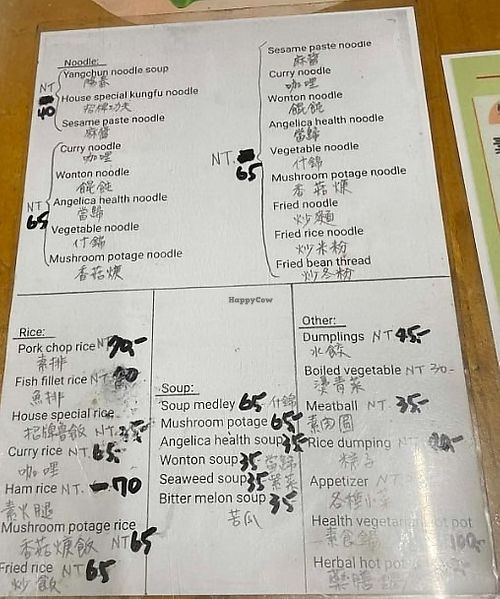 Noodle:
Yangchun noodle soup
陽春
House special kungfu noodle
招牌功夫
Sesame paste noodle
麻醬
NT
Curry noodle
咖哩
Wonton noodle
餛飩
Angelica health noodle
當歸
Vegetable noodle
什錦
Mushroom potage noodle
香菇焿
NT
65
Sesame paste noodle
麻醬
Curry noodle
咖哩
Wonton noodle
餛飩
Angelica health noodle
當歸
Vegetable noodle
什錦
Mushroom potage noodle
香菇焿
Fried noodle
炒麵
Fried rice noodle
炒米粉
Fried bean thread
炒冬粉
NT.
65
HappyCow
Rice:
Pork chop rice NT 70.-
素排
Fish fillet rice NT
魚排
House special rice
招牌魯飯 NT. 35.-
Curry rice NT. 65.-
咖哩
Ham rice NT. 70
素火腿
Mushroom potage rice
香菇焿飯 NT 65
Fried rice NT 65
炒飯
Soup:
Soup medley 65 什錦
Mushroom potage 65.-
Angelica health soup 35.-
Wonton soup 35 當歸
Seaweed soup 35 紫菜
Bitter melon soup 35
苦瓜
Other:
Dumplings NT 45.-
水餃
Boiled vegetable NT 30.-
燙青菜
Meatball NT. 35.-
素肉圓
Rice dumping NT.
粽子
Appetizer NT.
各種小菜
Health vegetarian hot pot
素食鍋 100.-
Herbal hot pot
藥膳鍋